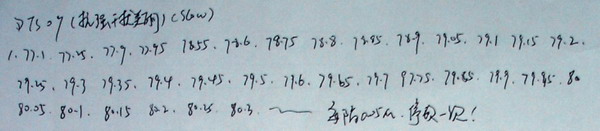 DTS07(抗强干扰类开)(Slow)
1. 77.1. 77.25. 77.9. 77.95 78.55. 78.6. 78.75 78.8. 78.85. 78.9. 79.05. 79.1 79.15 79.2.
79.25. 79.3 79.35. 79.4. 79.45. 79.5. 79.6. 79.65. 79.7 97.75. 79.85. 79.9. 79.95. 80
80.05. 80.1. 80.15 80.2. 80.25 80.3. —— 每隔0.05m. 停顿一次!